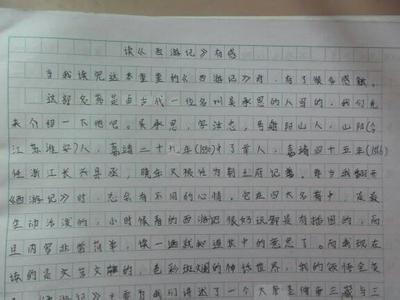 读《西游记》有感
当我读完这本重重的《西游记》时,有了很多感触。
这部名著是由古代一位名叫吴承恩的人写的,我们先
来介绍一下他吧。吴承恩,字汝忠,号射阳山人,山阳(今
江苏淮安)人,嘉靖二十九年(1550)中了贡人,嘉靖四十五年(1566)
任浙江长兴县丞,晚年又被任为荆王府纪善。每当我翻开
《西游记》时,总会有不同的心情。它在四大名著中,友最
生动活泼的,小时候看的西游记很好认都是有插图的,而
且内容非常简单,读一遍就知道其中的意思了。而我现在
读的是文言文版的,色彩斑斓的神话世界,我的
《西游记》主要为我们讲述了一个大